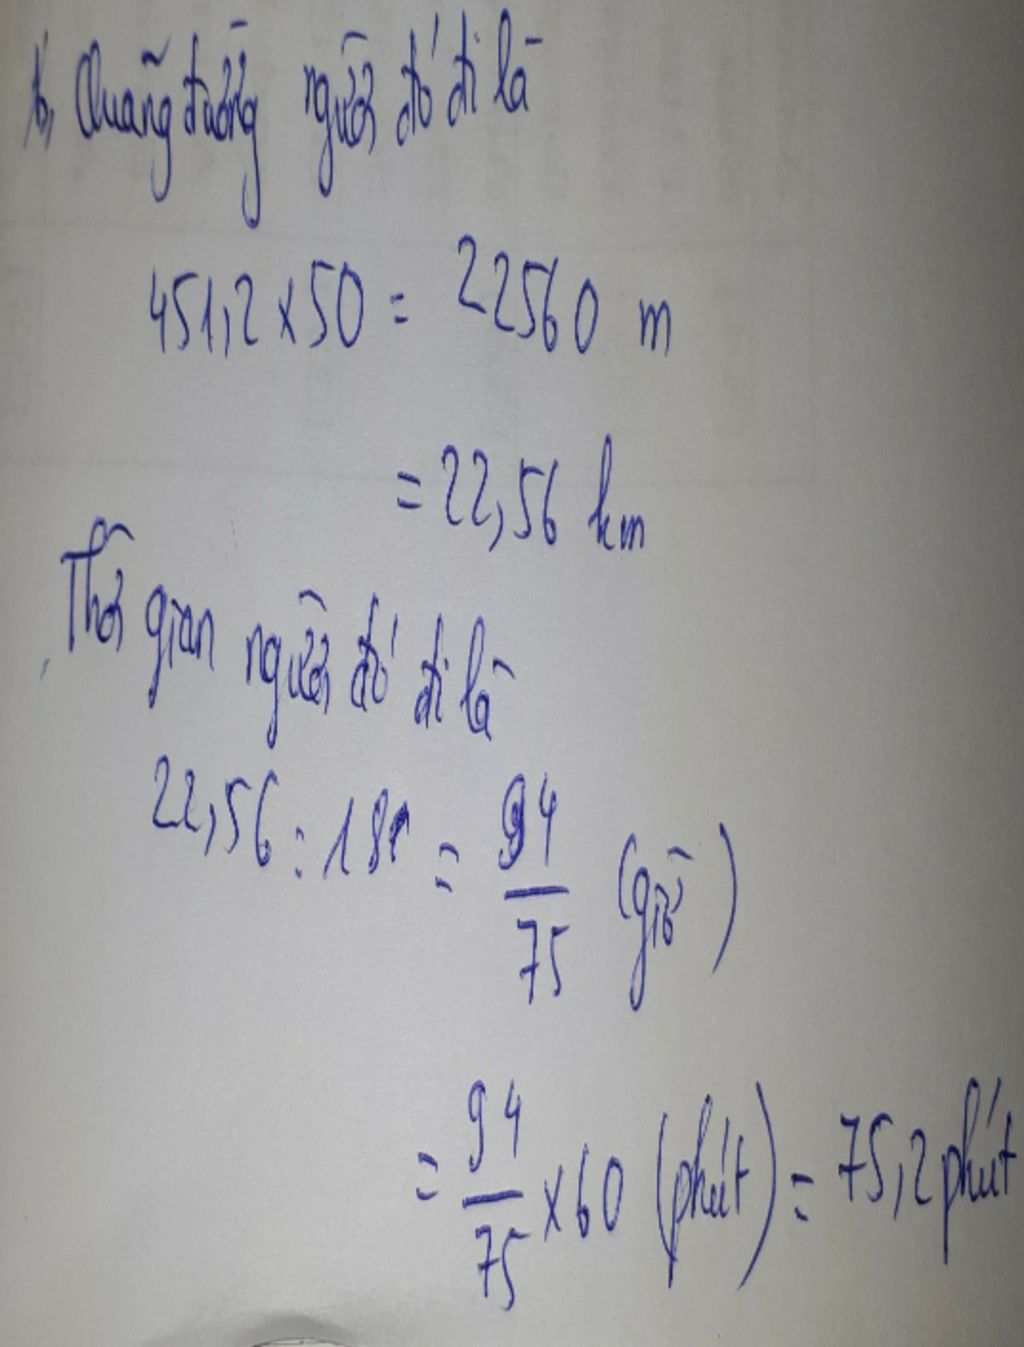 b, Quãng đường người đó đi là
451,2 x 50 = 22560 m
= 22,56 km
Thời gian người đó đi là
22,56 : 18 = 94/75 (giờ)
= 94/75 x 60 (phút) = 75,2 phút